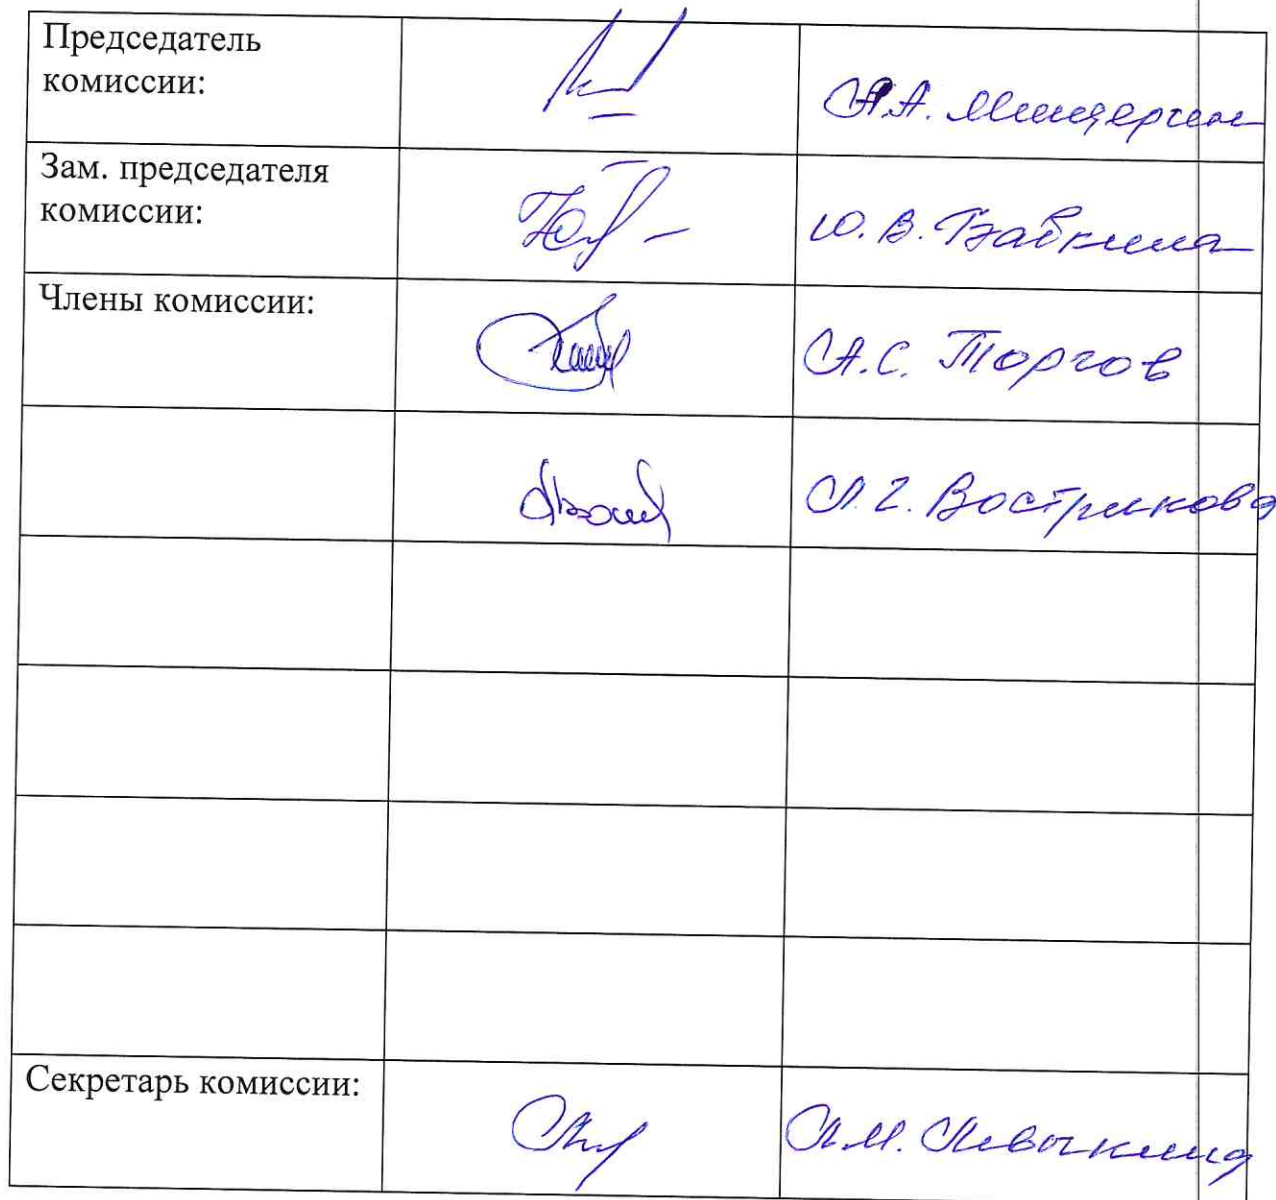 Председатель
комиссии:
А.А. Миндергин
Зам. председателя
комиссии:
Ю. В. Бабкина
Члены комиссии:
А.С. Торгов
Л. Г. Вострикова
Секретарь комиссии:
Л.М. Левыкина